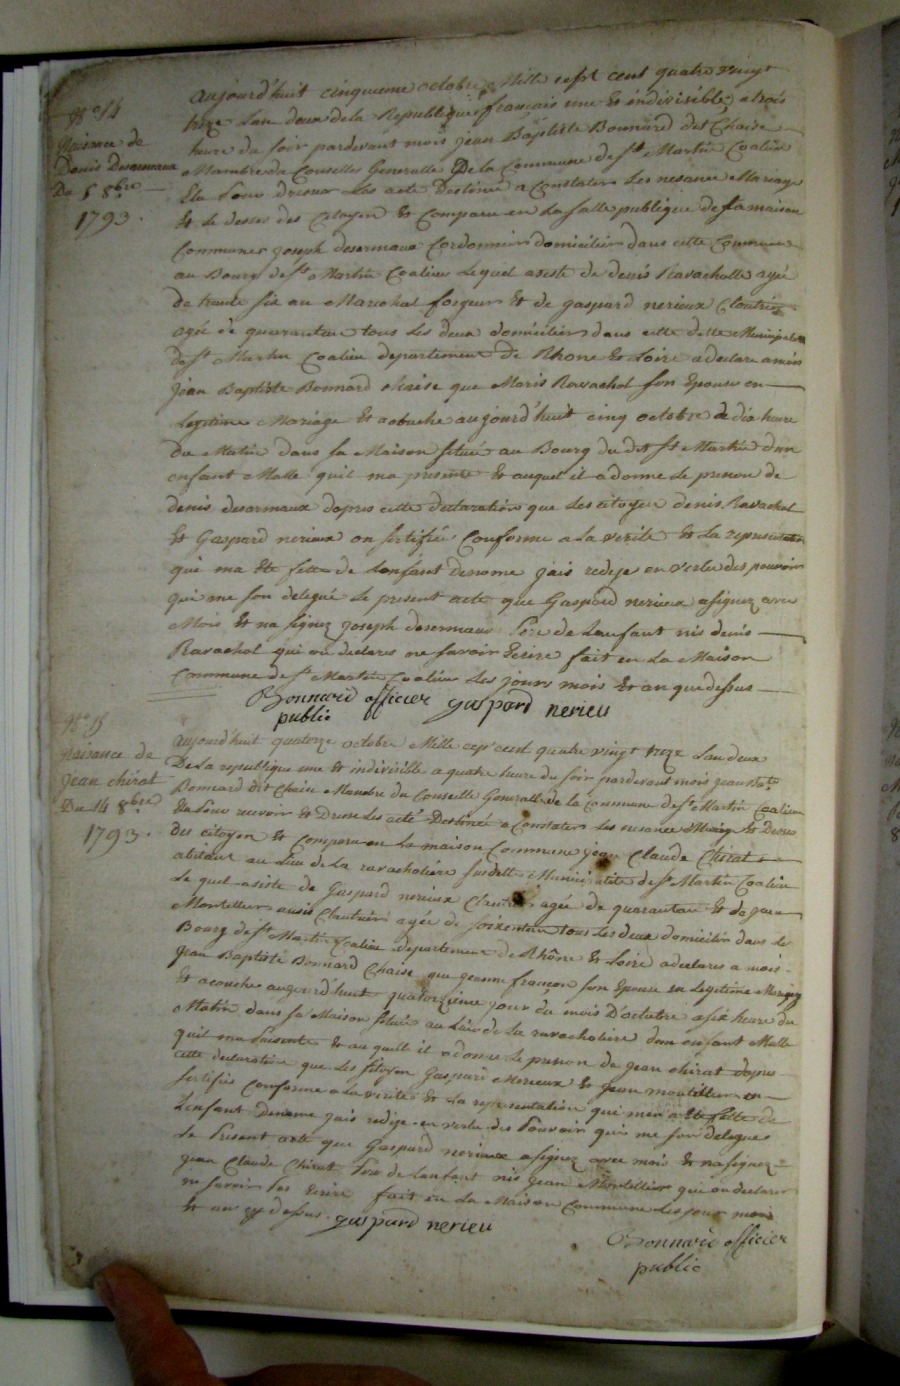 N° 14
Naisance de
Denis Desarmaux
Du 5 8bre
1793.
aujourd'huit cinquieme octobre Mille sept cent quatre vingt
treze Lan deux dela Republique français une Et indivisible, a trois
heure du soir pardevant mois jean Baptiste Bonnard dit Chaise
Membre du Conselle Generalle De la Commune de St Martin Coalieu
Elu Pour dresser Les acte Destiné a Constater Les nesance Mariage
Et le desces des Citoyen Et Comparu en La salle publique de la maison
Commune joseph desermaux Cordonnier domicilier dans cette Commune
au Bourg de St Martin Coalieu Lequel asisté de denis Ravacholle agé
de trante six an Marechal forgeur Et de gaspard nerieux Cloutrier
agée de quarantun tous Les deux domiciliers dans cette dette Municipalite
de St Martin Coalieu departement De Rhone Et Loire a declare a mois
jean Baptiste Bonnard chaise que Maris Ravachol son Epouse en
Legitime Mariage Et acouche aujourd'huit cinq octobre a dix heure
Du Matin dans sa Maison située au Bourg du dit St Martin dun
enfant Malle quil ma presenté Et auquel il a donné Le prenon de
denis desarmaux dapres cette declaration que Les citoyen denis Ravachol
Et Gaspard nerieux on sertifiée Conforme a La verite Et La representation
qui ma Ete fette de Lenfant denome jais redijé en vertu des pouvoir
qui me son delegué Le present acte que Gaspard nerieux a signez avec
Mois Et na signez joseph desermaux Pere de Lenfant nis denis
Ravachol qui on declares ne savoir Ecrire fait en La Maison
Commune de St Martin Coalieu Les jours mois Et an que dessus
Bonnard officier
public
gaspard nerieu
N° 15
Naisance de
jean chirat
Du 14 8bre
1793.
aujourd'huit quatorze octobre Mille cept cent quatre vingt treze Lan deux
De La republique une Et indivisible a quatre heure du soir pardevant mois jean Bte
Bonnard dit Chaise Membre du Conseille Generalle de la Commune de St Martin Coalieu
Elu Pour recevoir Et Dresse Les acté Destinée a Constater Les nesance Mariage Et Deces
des citoyen Et Comparu en La maison Commune jean Claude Chirat
abitant au Lieu de La ravacholiere susdette Municipalité de St Martin Coalieu
Le quel asisté de Gaspard nerieux Cloutrié agée de quarantun Et de jean
Montellier ausis Cloutrier agée de soixantun tous Les deux domicilier dans Le
Bourg de St Martin Coalieu departement de Rhône Et Loire a declares a mois
jean Baptiste Bonnard Chaise que jeanne françon son Epouse en Legitime Mariage
Et acouche aujourd'huit quatorzieme jour du mois D'octobre a six heure du
Matin dans sa Maison située au Lieu de La ravacholiere dun enfant Malle
quil ma Presente Et au quelle il a donné Le prenon de jean chirat dapres
cette declaration que Les sitoyen Gaspard Nerieux Et jean montellier on
sertifiés Conforme a La verité Et La representation qui men a Ete fette de
Lenfant denome jais redije en vertu des Pouvoir qui me son delegues
Le Present acte que Gaspard nerieux a signez avec mois Et na signez
jean Claude Chirat Pere de Lenfant nis jean Montellier qui on declarer
ne savoir Pas Ecrire fait en La Maison Commune Les jour mois
Et an qu desus. gaspard nerieu
Bonnard officier
public